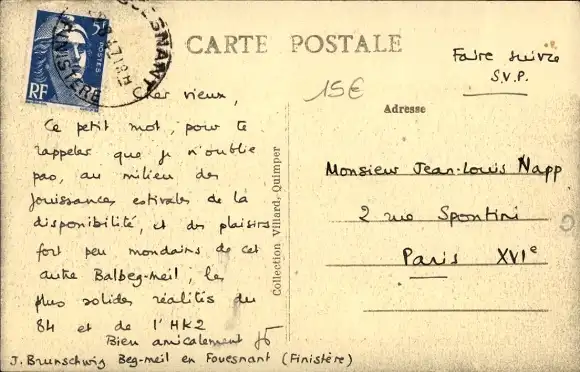 5F
POSTES
RF
FOUESNANT
FINISTERE
CARTE POSTALE
Faire suivre
S.V.P.
15€
Adresse
Cher vieux,
Ce petit mot, pour te
rappeler que je n'oublie
pas, au milieu des
jouissances estivales de la
disponibilité, et des plaisirs
fort peu mondains de cet
autre Balbeg-meil, les
plus solides réalités du
84 et de l'HK2
Bien amicalement
J. Brunschwig Beg-meil en Fouesnant (Finistère)
Collection Villard, Quimper
Monsieur Jean-Louis Napp
2 rue Spontini
Paris XVIe